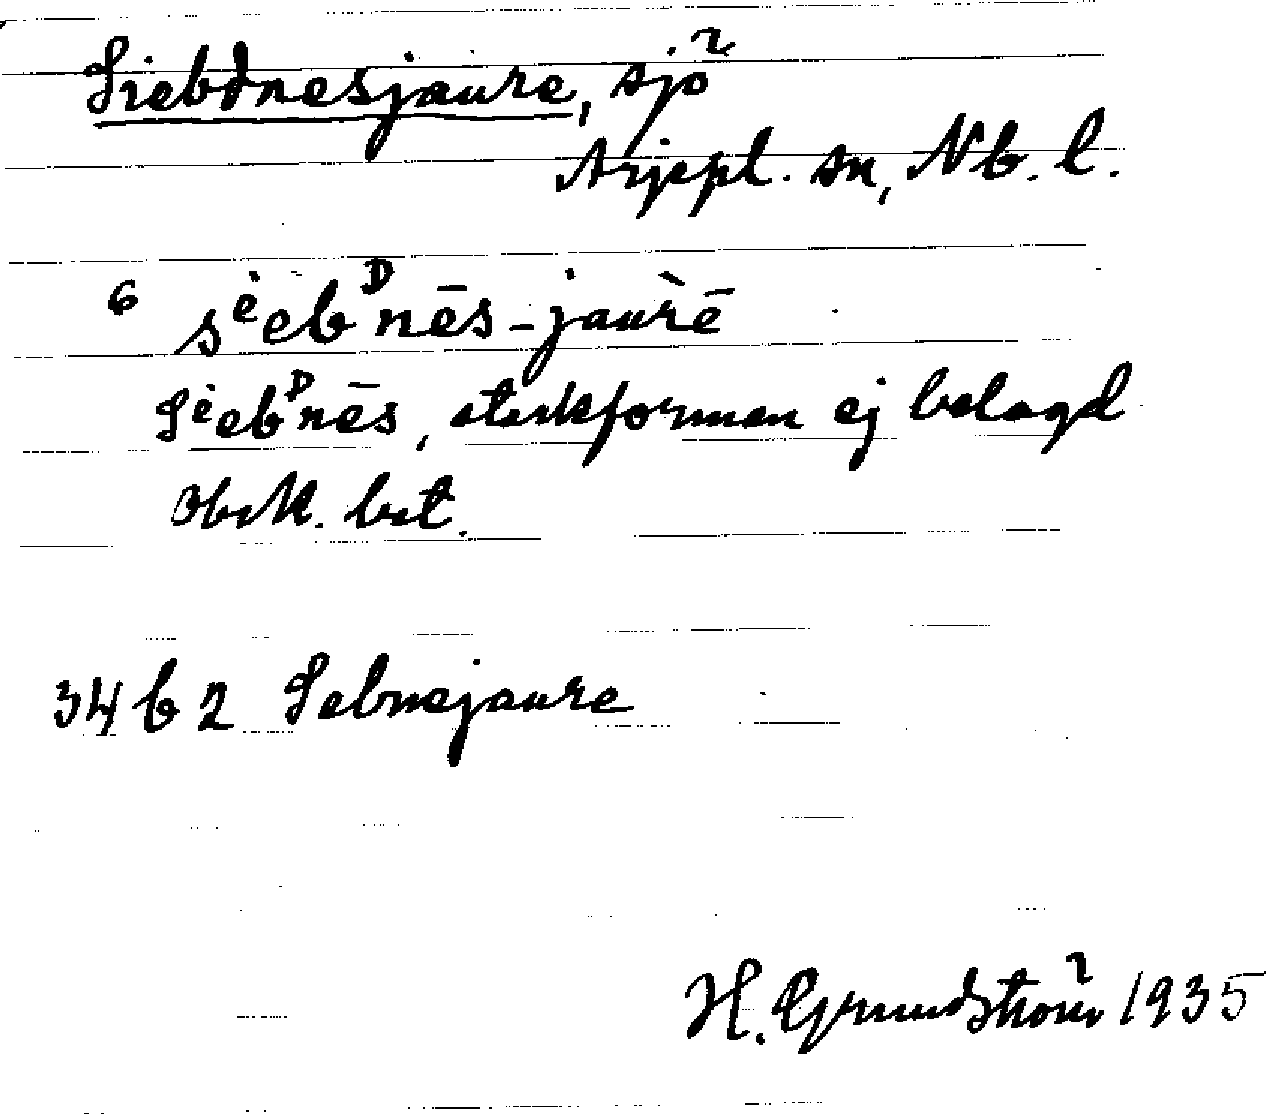 Siebdnesjaure, sjö
Arjepl. sn, Nb. l.
6 sᵉ̀ebᴰnēs-jaùrē
Sᵉ̀ebᴰnēs, starkformen ej belagd
Obek. bet.
34 b 2 Sebnejaure
H. Grundström 1935